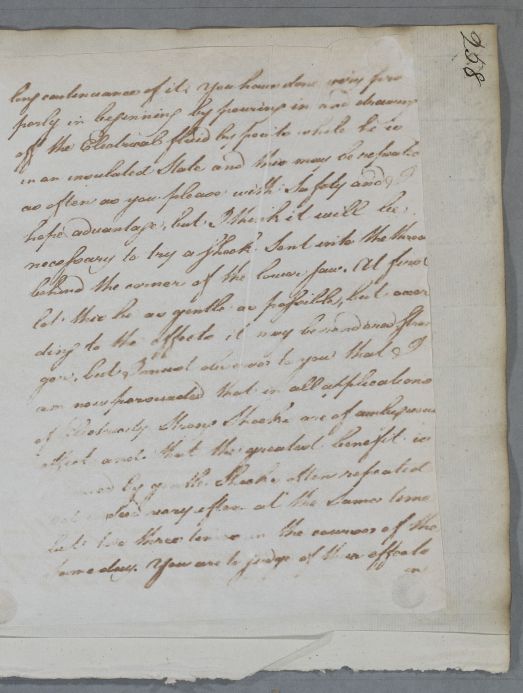 258
long continuance of it. You have done very pro
perly in beginning by pouring in and drawing
off the Electrical fluid by points while he is
in an insulated State and this may be repeated
as often as you please with Safety and I
hope advantage, but I think it will be
necessary to try a shock Sent into the throat
behind the corner of the lower jaw. At first
let this be as gentle as possible, but accor
ding to the effects it may be rendered stron
ger, but I must observe to you that I
am now persuaded that in all applications
of Electricity Strong Shocks are of ambiguous
effect and that the greatest benefit is
by gentle Shocks often repeated
not indeed very often at the same time
but two three times in the course of the
same day. You are to judge of their effects
on